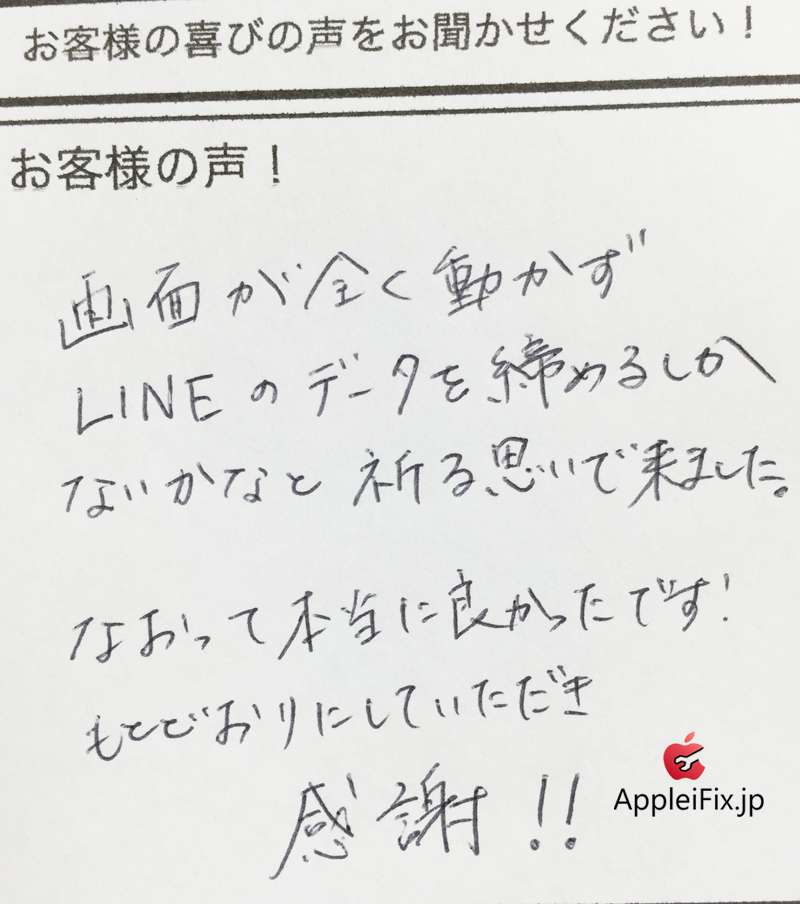 お客様の喜びの声をお聞かせください！
お客様の声！
画面が全く動かず
LINEのデータを締めるしか
ないかなと祈る思いで来ました。
なおって本当に良かったです！
もとどおりにしていただき
感謝！！
AppleiFix.jp